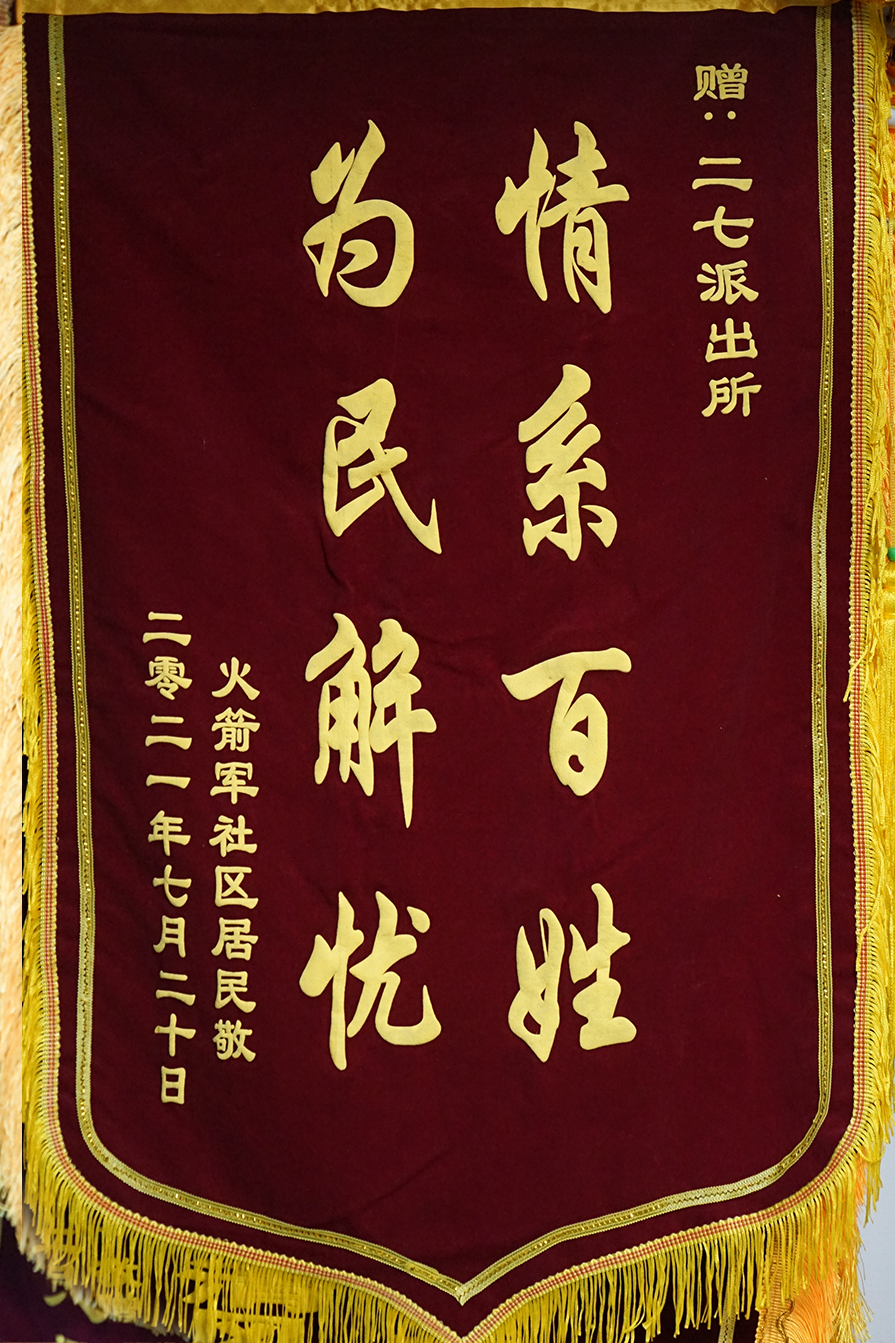 赠：二七派出所
情系百姓
为民解忧
火箭军社区居民敬
二零二一年七月二十日